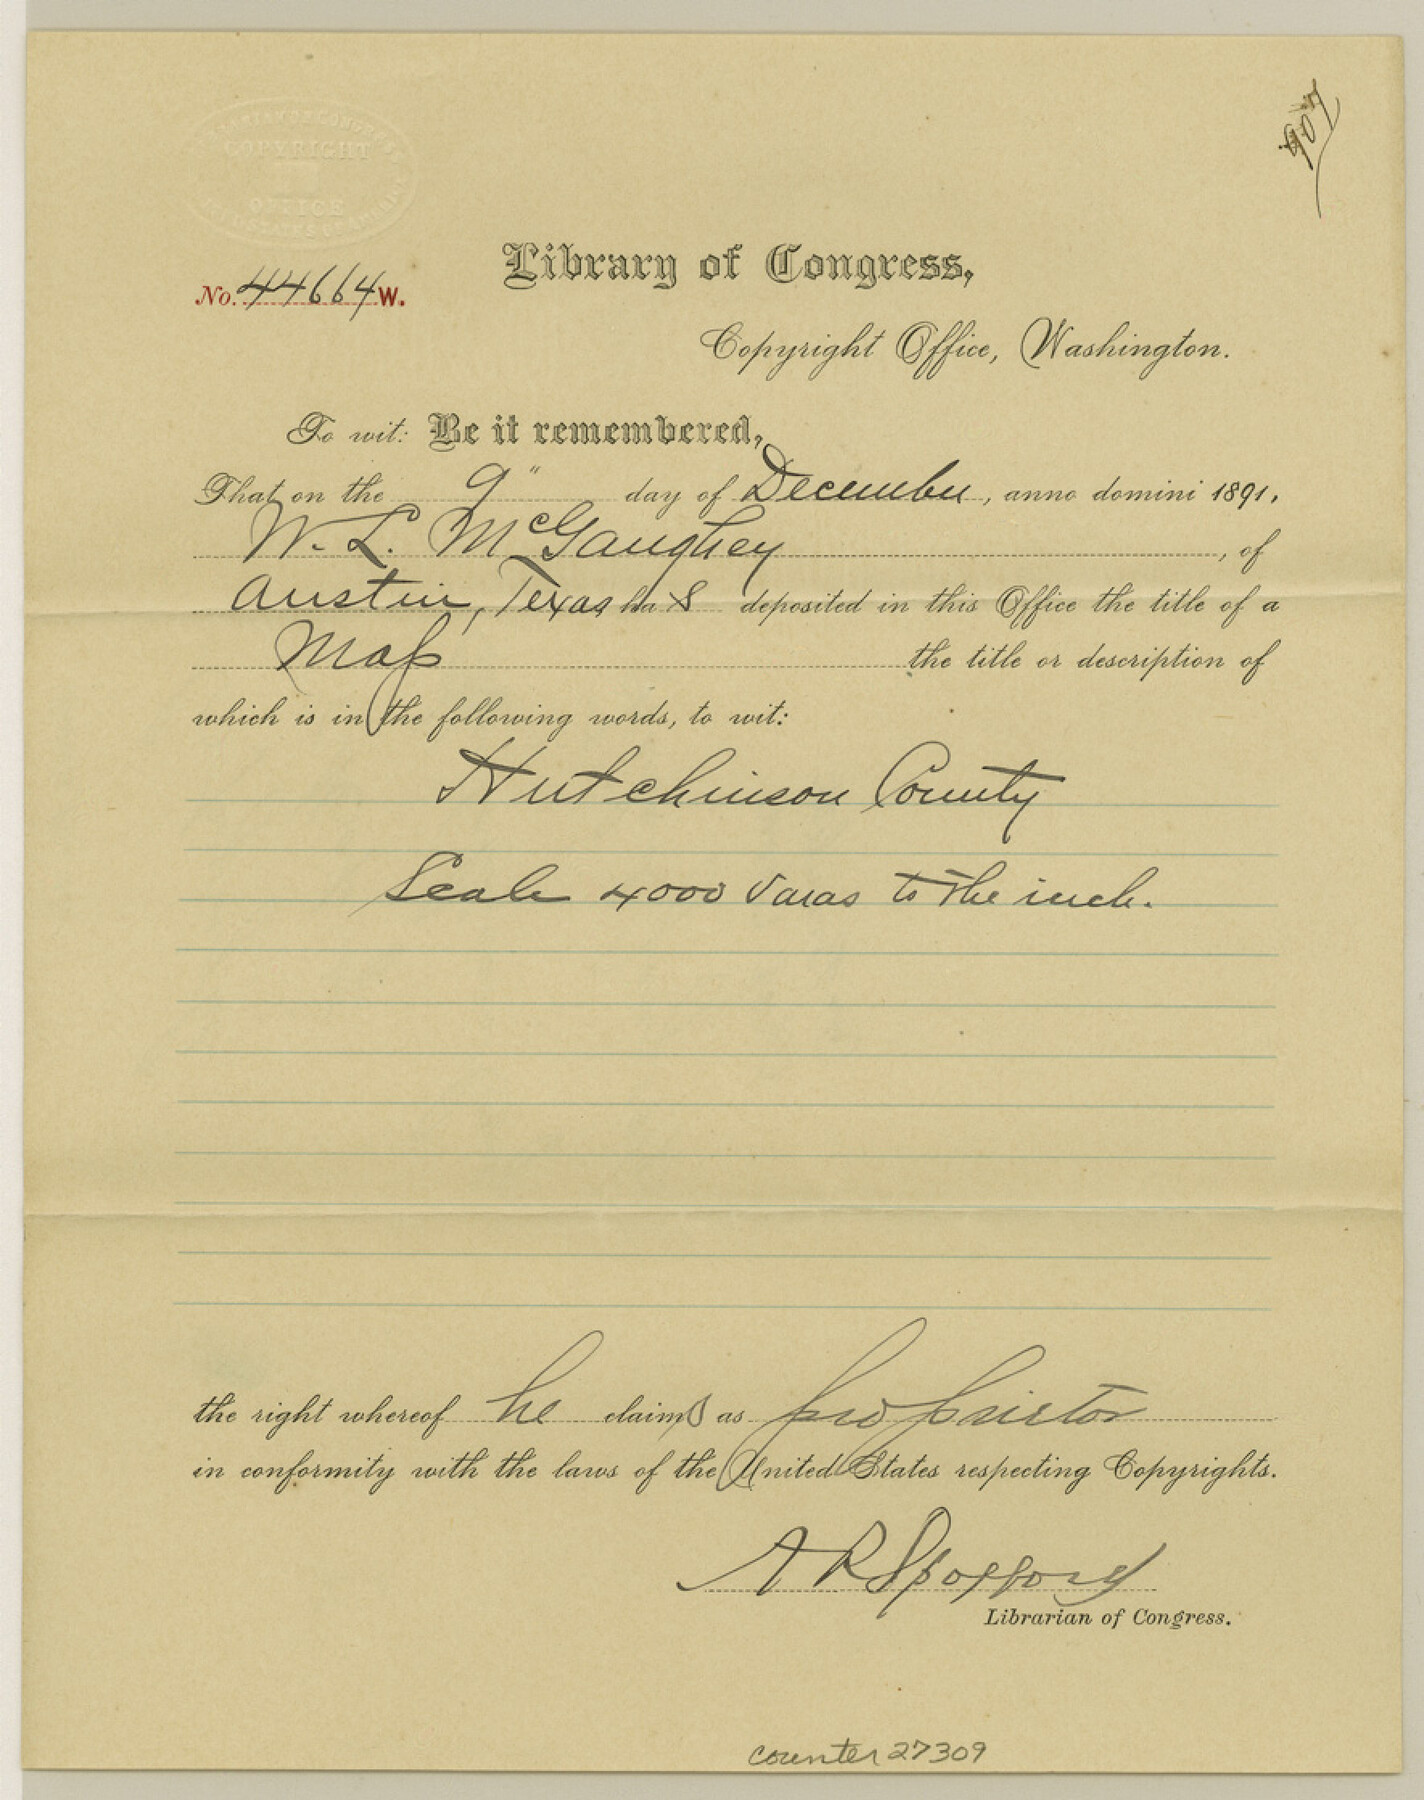 LIBRARIAN OF CONGRESS
COPYRIGHT
OFFICE
UNITED STATES OF AMERICA
No. 44664 W.
Library of Congress,
Copyright Office, Washington.
To wit: Be it remembered,
That on the 9" day of December, anno domini 1891,
W. L. McGaughey, of
Austin, Texas has deposited in this Office the title of a
Map the title or description of
which is in the following words, to wit:
Hutchinson County
Scale 4000 Varas to the inch.
the right whereof he claims as proprietor
in conformity with the laws of the United States respecting Copyrights.
A R Spofford
Librarian of Congress.
counter 27309